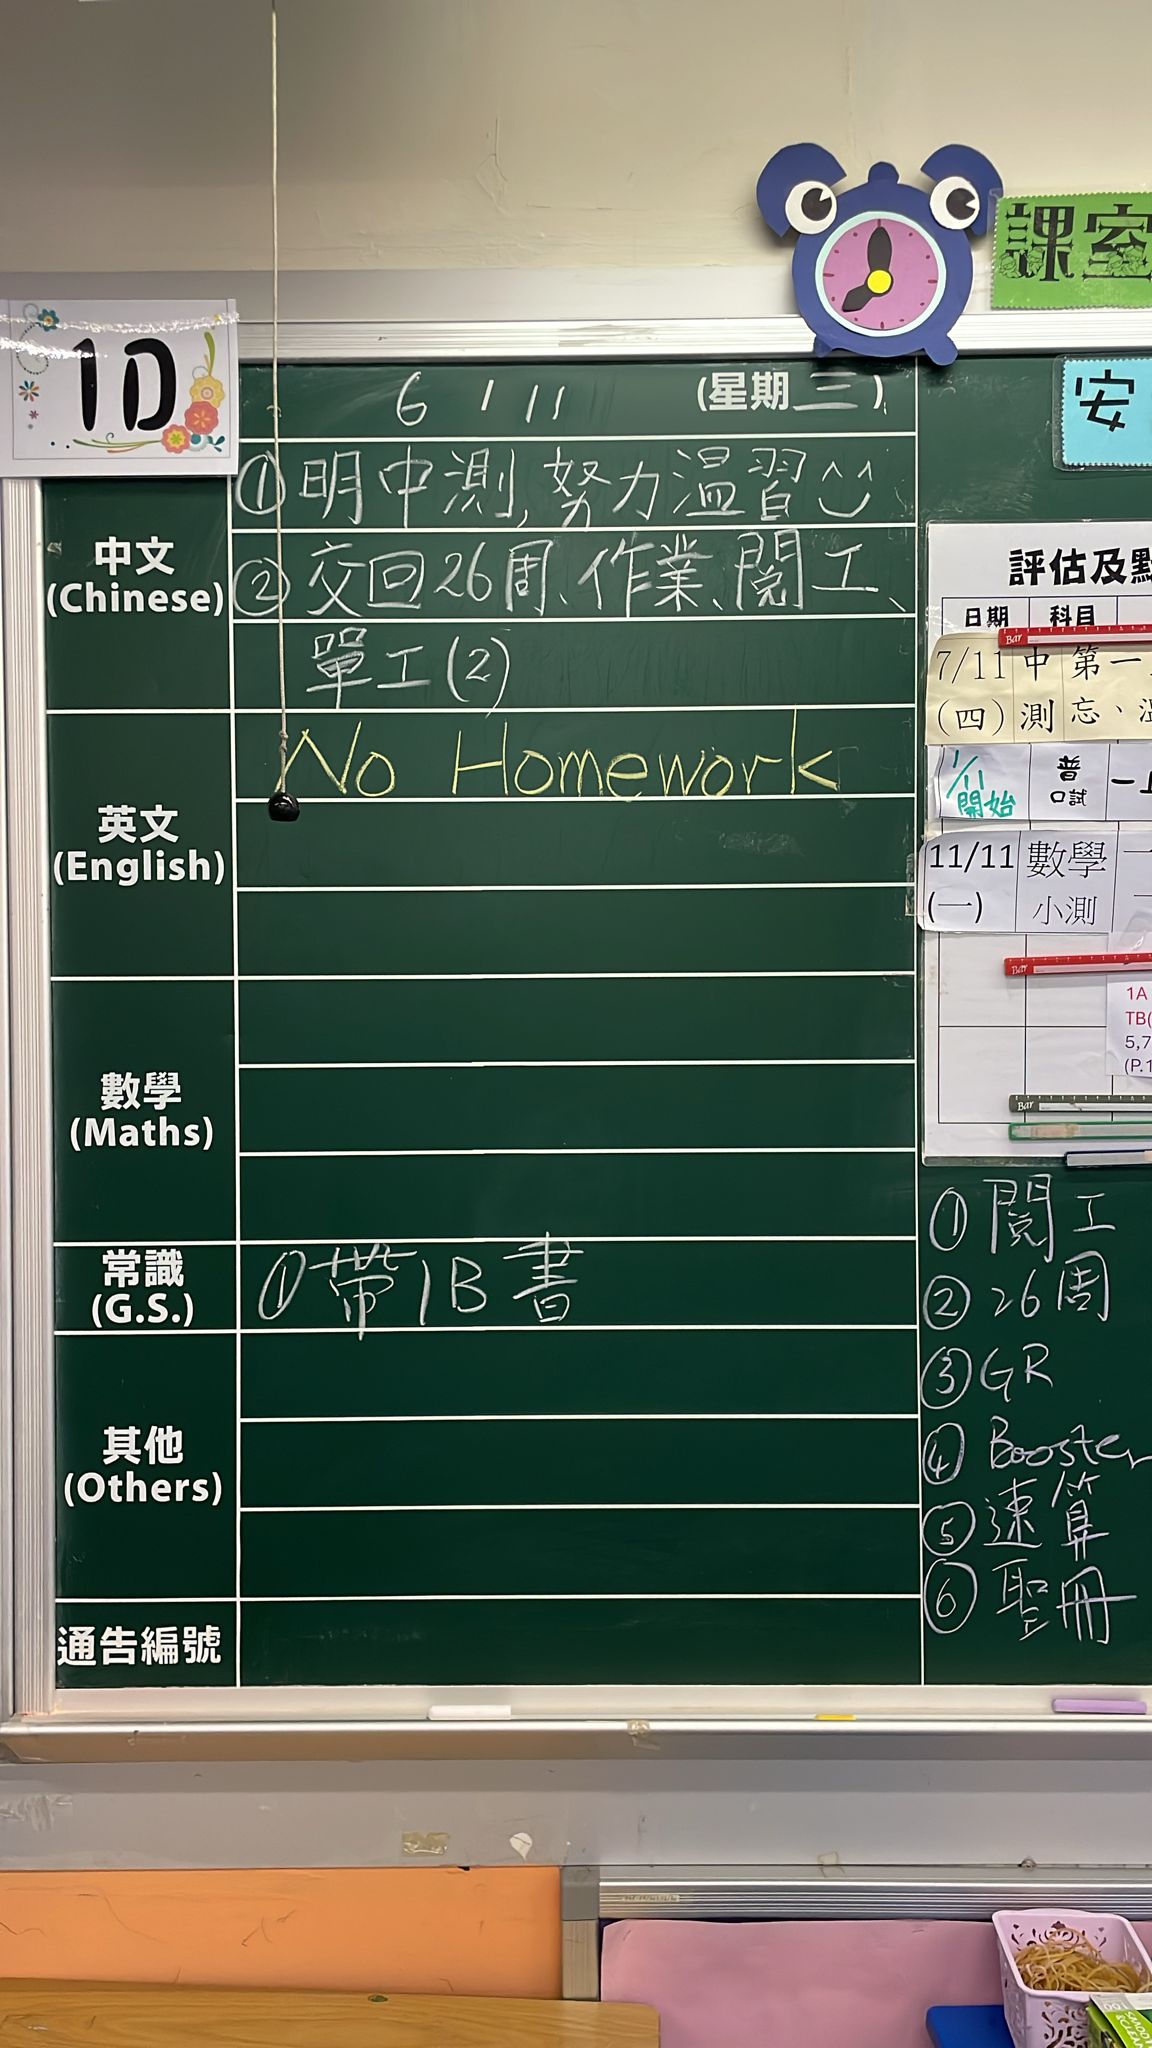 課室
1D
6 / 11 (星期三)
安
中文
(Chinese)
①明中測,努力温習
②交回26周、作業、閱工、
單工(2)
英文
(English)
No Homework
數學
(Maths)
常識
(G.S.)
①帶1B書
其他
(Others)
通告編號
評估及點
日期 科目
Bar
7/11 中 第一
(四) 測 忘、溫
1/11 開始 普 口試
11/11 數學
(一) 小測
Bar
1A
TB(
5,7
(P.1
Bar
①閱工
②26周
③GR
④Booster
⑤速算
⑥聖冊